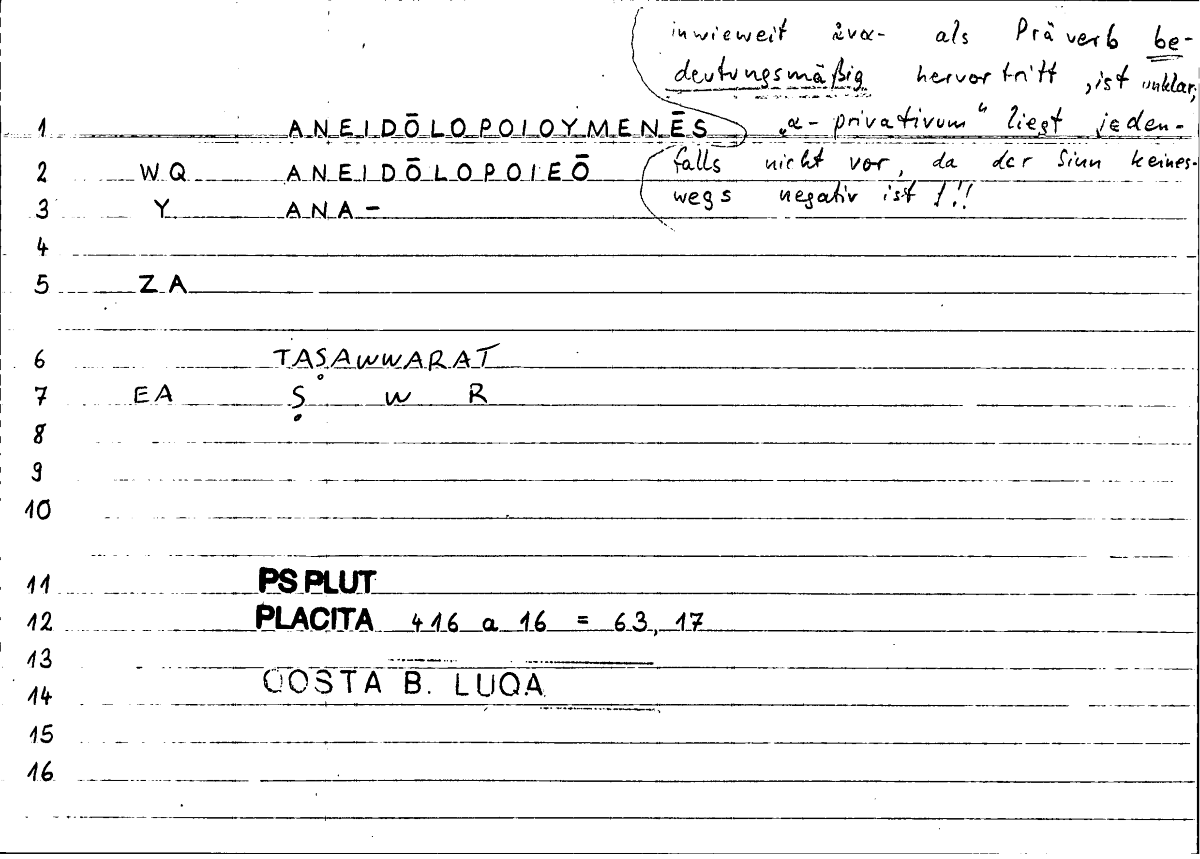 inwieweit ἀνα- als Präverb be-
deutungsmäßig hervortritt, ist unklar,
1 ANEIDŌLOPOIOYMENĒS „α-privativum“ liegt jeden-
2 WQ ANEIDŌLOPOIEŌ falls nicht vor, da der Sinn keines-
3 Y ANA- wegs negativ ist !!!
4
5 ZA
6 TAṢAWWARAT
7 EA Ṣ W R
8
9
10
11 PS PLUT
12 PLACITA 416 a 16 = 63,17
13
14 QOSTA B. LUQA
15
16